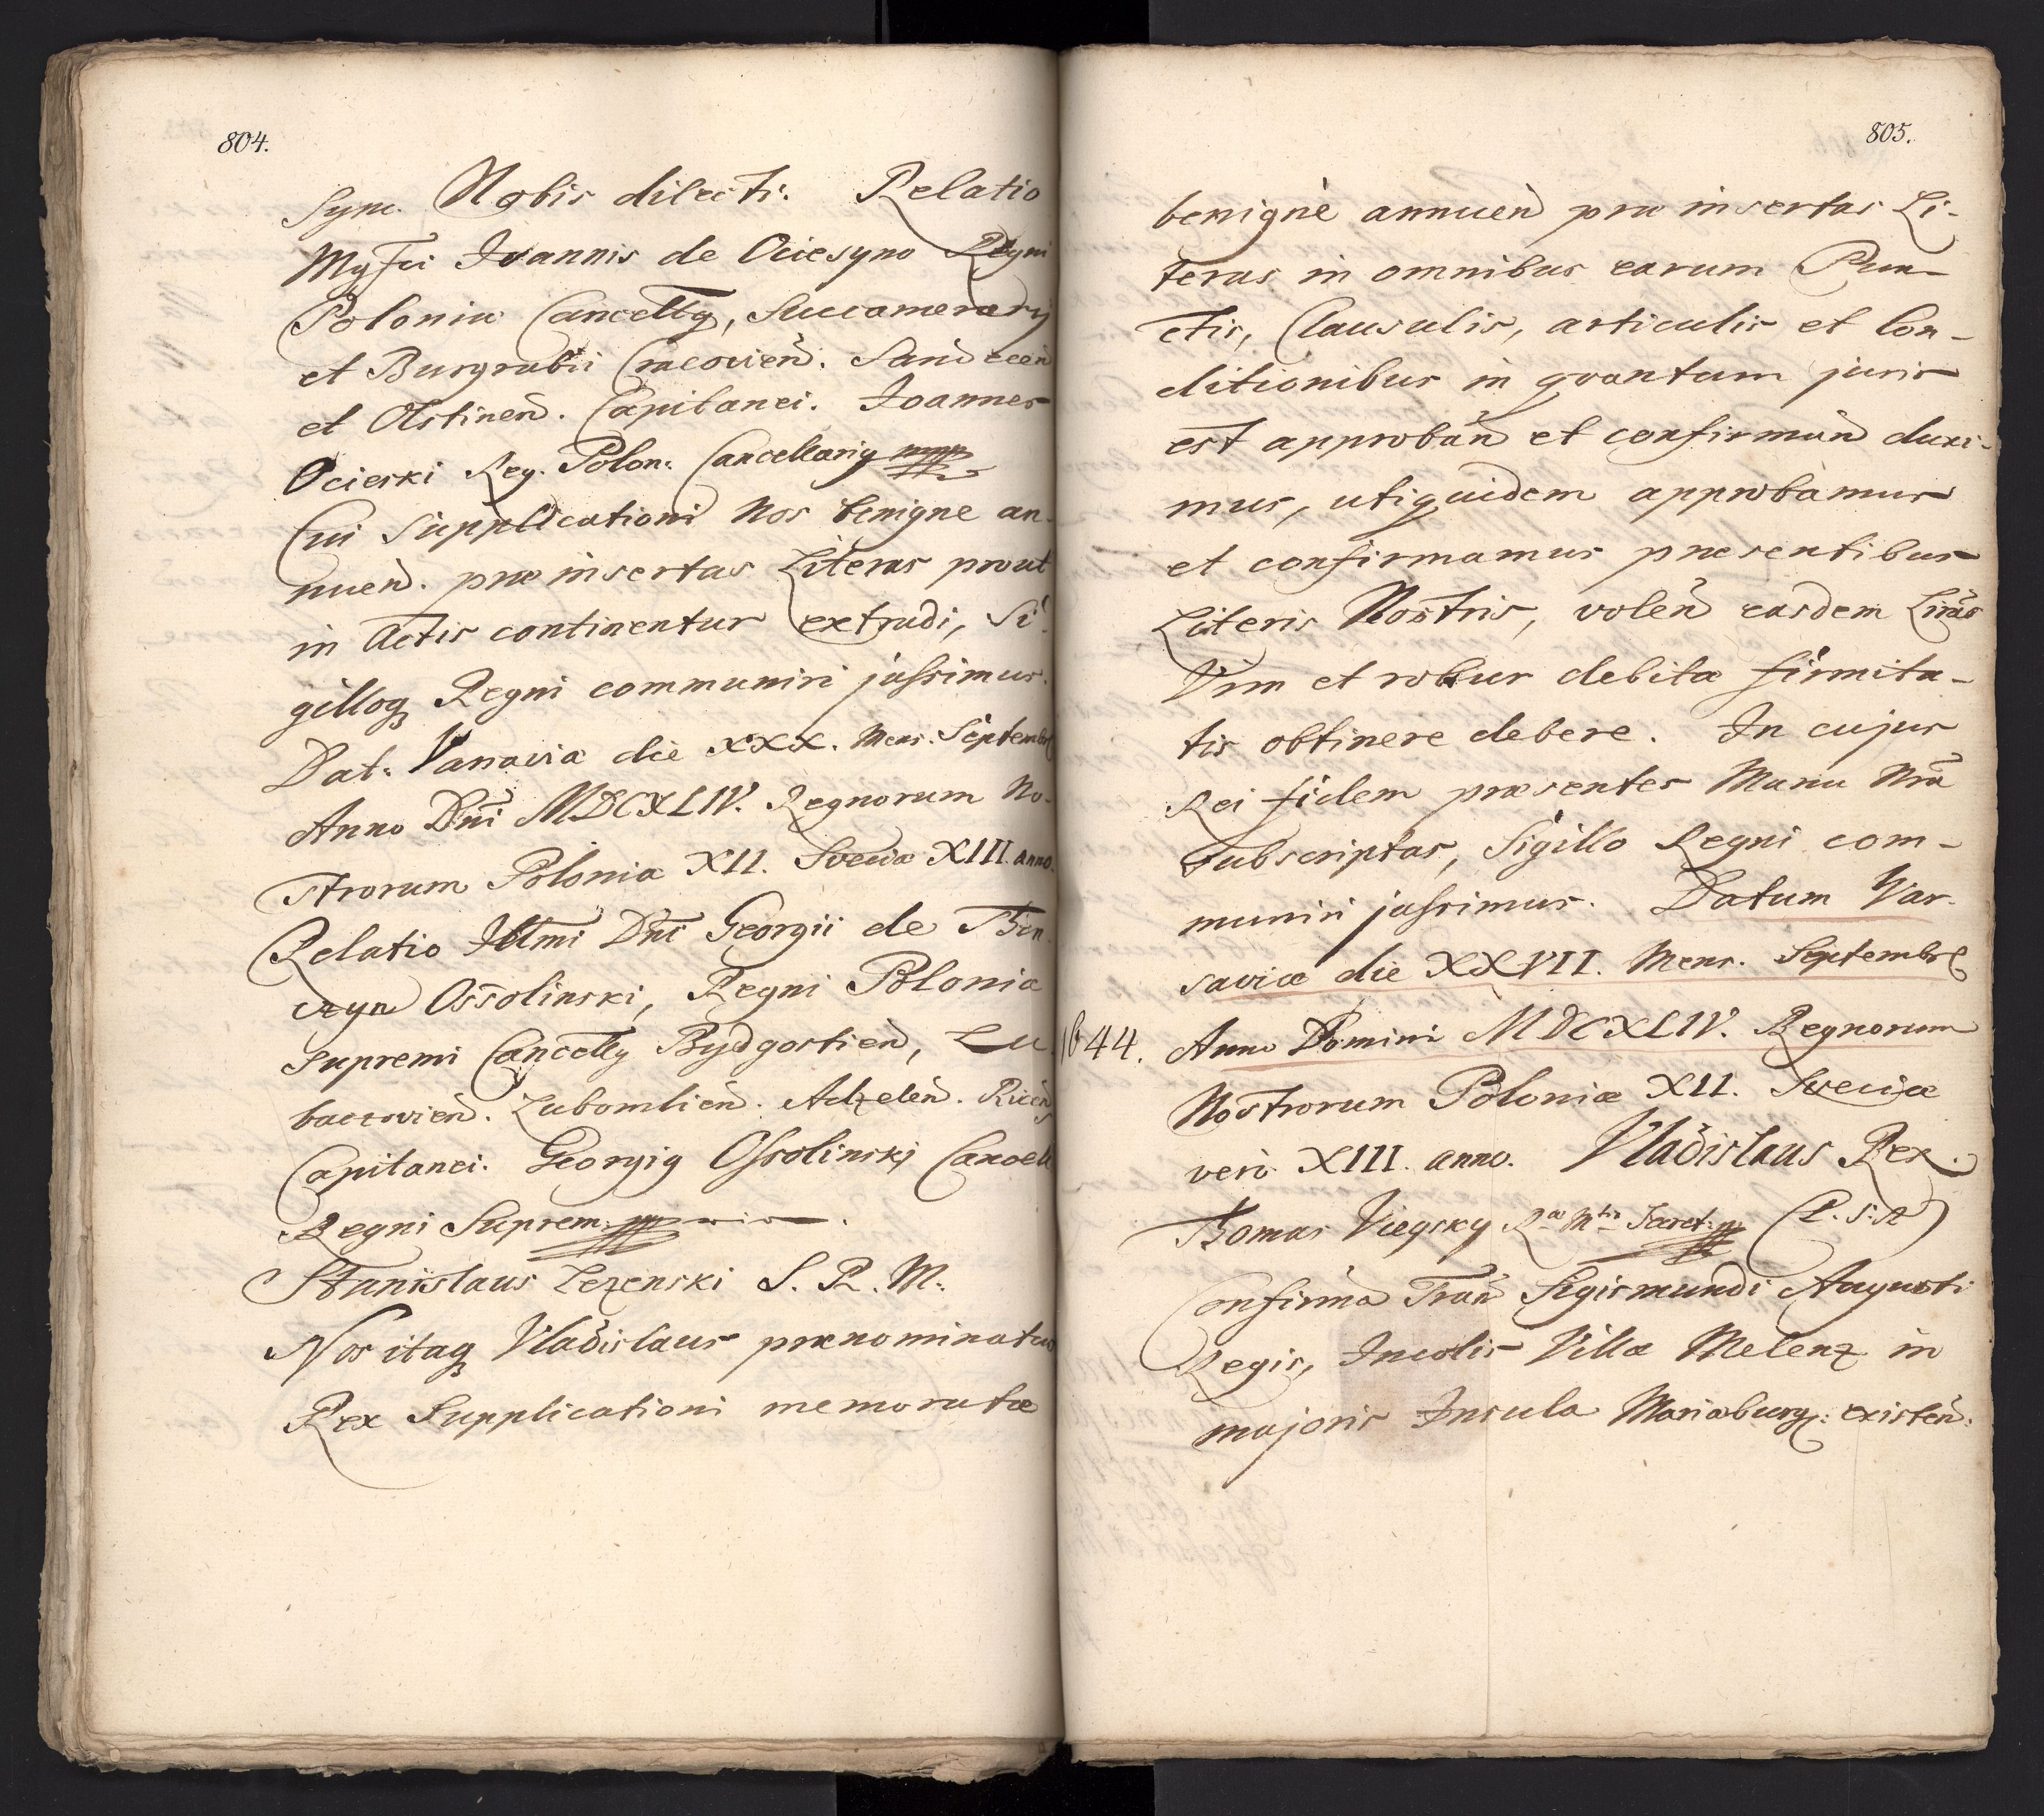 804.
Sync. Nobis dilecti. Relatio
Mgfci Joannis de Ociesyno Regni
Poloniæ Cancellꝯ, Succamerarij
et Burgrabii Cracovien̄. Sandecen̄
et Olstinen̄. Capitanei. Joannes
Ocieski Reg. Polon: Cancellariꝯ mpp
Cui Supplicationi Nos benigne an-
nuen̄. præinsertas Literas prout
in Actis continentur extradi, Si-
gilloq̨ Regni communiri jussimus.
Dat: Varsaviæ die XXX. Mens. Septembr̄
Anno Dn̄i MDCXLIV. Regnorum No-
strorum Poloniæ XII. Sveciæ XIII. anno.
Relatio Illmi Dn̄i Georgii de Thęn-
czyn Ossolinski, Regni Poloniæ
Supremi Cancellꝯ Bydgostien̄, Lu-
baczovien̄. Lubomlien̄. Adzelen̄. Ricen̄
Capitanei. Georgiꝯ Ossolinskj Cancell
Regni Suprem. mpp
Stanislaus Lezenski S. R. M:
Nos itaq̨ Vladislaus prænominatus
Rex Supplicationi memoratæ
805.
benignè annuen̄ præinsertas Li-
teras in omnibus earum Pun-
ctis, Clausulis, articulis et Con-
ditionibus in qvantum juris
est approban̄ et confirman̄ duxi-
mus, utiquidem approbamus
et confirmamus præsentibus
Literis Nostris, volen̄ easdem Lrās
Vim et robur debitæ firmita-
tis obtinere debere. In cujus
Rei fidem præsentes Manu Nrā
subscriptas, Sigillo Regni com-
muniri jussimus. Datum Var-
saviæ die XXVII. Mens. Septembr̄
1644. Anno Domini MDCXLIV. Regnorum
Nostrorum Poloniæ XII. Sveciæ
verò XIII. anno. Vladislaus Rex.
Thomas Viegsky Ræ Mtis Secret: mpp (L.S.R)
Confirma Tran̄ Sigismundi Augusti
Regis, Incolis Villæ Melenz in
majoris Insula Mariaburg: existen̄: